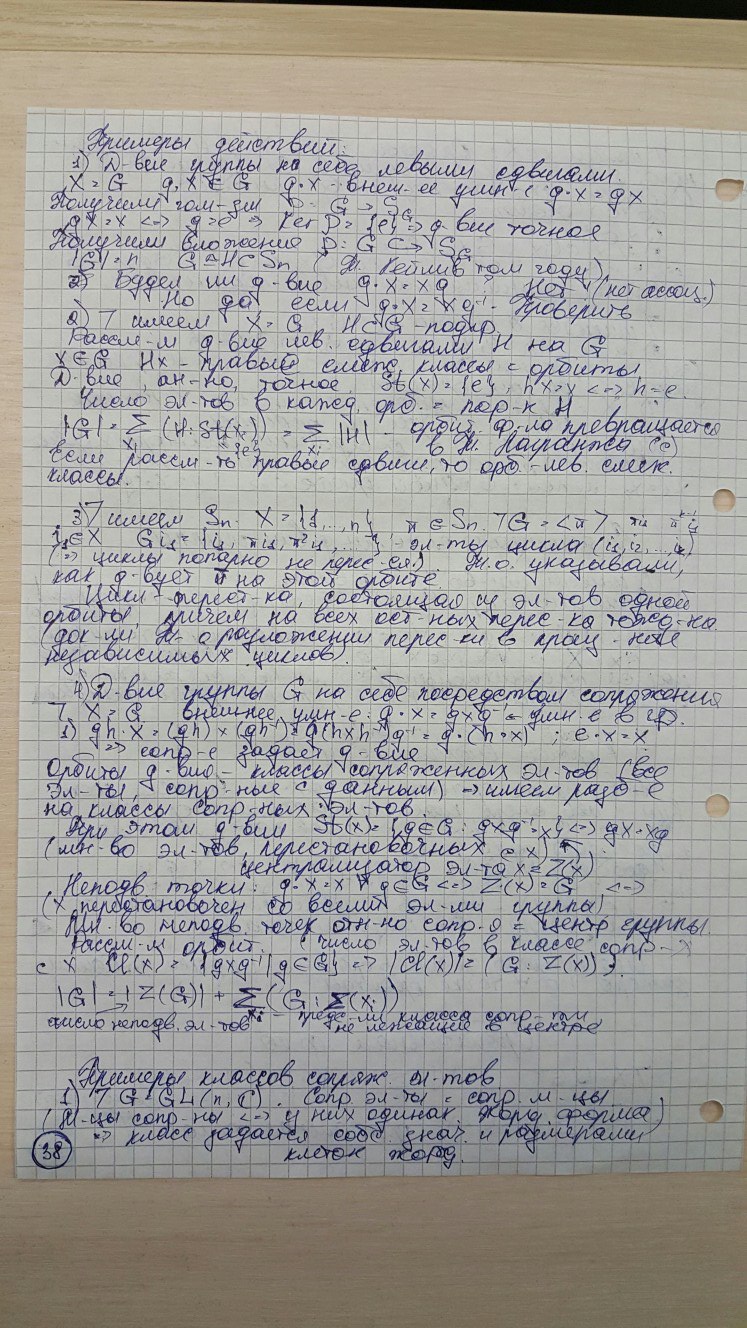 Примеры действий:
1) Д-вие группы на себе левыми сдвигами.
X = G g, x ∈ G g·x - внеш-ее умн-е g·x = gx
Получим гом-зм ρ: G → S_G
gx = x <=> g = e => Ker ρ = {e} => д-вие точное
Получили вложение ρ: G ↪ S_G
|G| = n G ≅ H ⊂ S_n (Т. Кейли в том году)
2) Будет ли д-вие g·x = xg Нет (нет ассоц.)
Но да, если g·x = xg⁻¹ - Проверить
2) ⅂ имеем X = G H ⊂ G - подгр.
Рассм-м д-вие лев. сдвигами H на G
x ∈ G Hx - правые смеж. классы = орбиты
Д-вие, ан-но, точное, St(x) = {e}, hx = x <=> h = e.
Число эл-тов в кажд. орб. = пор-к H
|G| = Σ_{x_i} (H : St(x_i)) = Σ_{x_i} |H| - орбит. ф-ла превращается
{e} в Т. Лагранжа (с)
Если рассм-ть правые сдвиги, то орб. - лев. смеж.
классы.
3) ⅂ имеем S_n. X = {1, ..., n} π ∈ S_n. ⅂ G = <π>
i_1 ∈ X G i_1 = {i_1, πi_1, π²i_1, ...} - эл-ты цикла (i_1, i_2, ..., i_k)
(=> циклы попарно не перес-ся). Т.о. указывали,
как д-вует π на этой орбите
Цикл - перест-ка, состоящая из эл-тов одной
орбиты, причем на всех ост-ных перес-ка тожд-на
(док-ли Т. о разложении перес-ки в произ-ние
независимых циклов)
4) Д-вие группы G на себе посредством сопряжения
⅂ X = G внешнее умн-е: g·x = gxg⁻¹ - умн-е в гр.
1) gh·x = (gh)x(gh)⁻¹ = g(hxh⁻¹)g⁻¹ = g·(h·x) ; e·x = x
=> сопр-е задает д-вие
Орбиты д-вия - классы сопряженных эл-тов (все
эл-ты, сопр-ные с данным) => имеем разб-е
на классы сопр-ных эл-тов.
При этом д-вии St(x) = {g ∈ G : gxg⁻¹ = x} <=> gx = xg
(мн-во эл-тов, перестановочных с x)
централизатор эл-та x = Z(x)
Неподв. точки: g·x = x ∀g ∈ G <=> Z(x) = G <=>
(x перестановочен со всеми эл-ми группы)
Мн-во неподв. точек отн-но сопр-я = центр группы.
Рассм-м орбит. (число эл-тов в классе сопр-х
с x Cl(x) = {gxg⁻¹ | g ∈ G} => |Cl(x)| = (G : Z(x)))
|G| = |Z(G)| + Σ_{x_i} (G : Z(x_i))
число неподв. эл-тов x_i - предс-ли класса сопр-ти
не лежащие в центре
Примеры классов сопряж. эл-тов
1) ⅂ G = GL(n, ℂ). Сопр. эл-ты = сопр. м-цы
(М-цы сопр-ны <=> у них одинак. жорд. форма)
=> класс задается собс. знач. и размерами
клеток жорд.
38